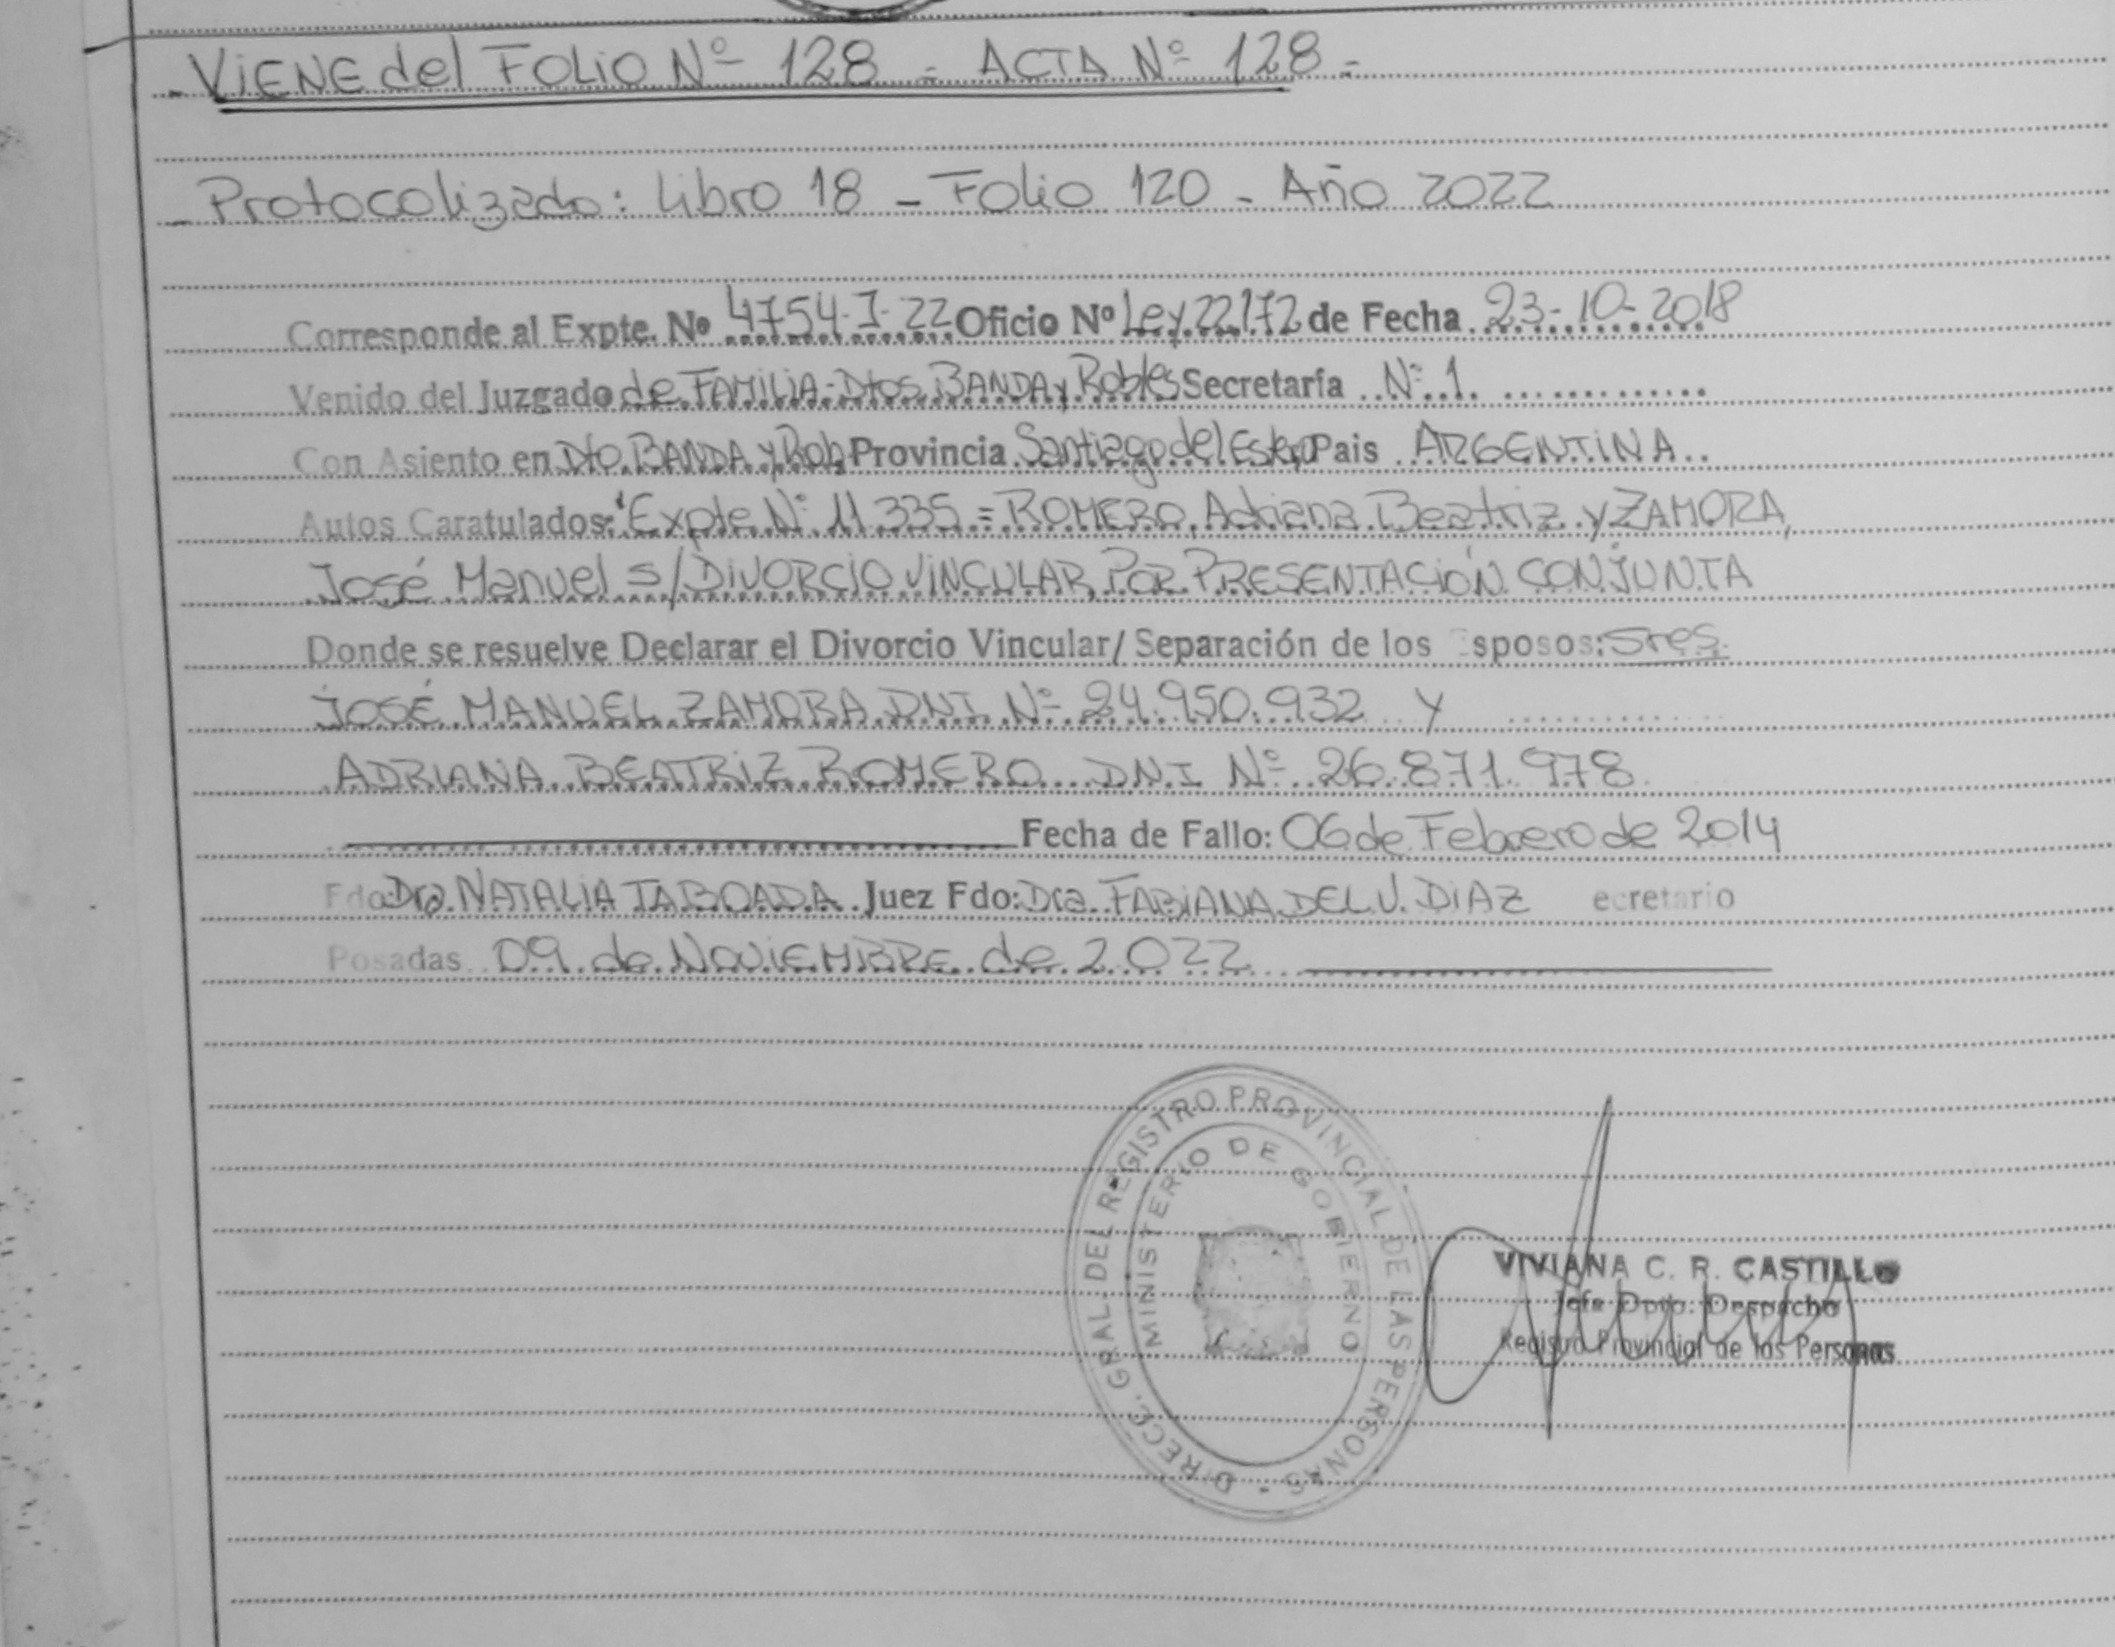 - VIENE del FOLIO Nº 128 - ACTA Nº 128 -
- Protocolizado: Libro 18 - Folio 120 - Año 2022
Corresponde al Expte. Nº 4754-I-22 Oficio Nº Ley 22172 de Fecha 23-10-2018
Venido del Juzgado de FAMILIA-Dtos. BANDA y Robles Secretaría Nº 1.
Con Asiento en Dto. BANDA y Rob. Provincia Santiago del Estero Pais ARGENTINA
Autos Caratulados: "Expte Nº 11335 = ROMERO, Adriana Beatriz y ZAMORA,
José Manuel s/ DIVORCIO VINCULAR POR PRESENTACIÓN CONJUNTA
Donde se resuelve Declarar el Divorcio Vincular/ Separación de los Esposos: Sres.
JOSÉ MANUEL ZAMORA DNI Nº 24.950.932 y
ADRIANA BEATRIZ ROMERO DNI Nº 26.871.978
Fecha de Fallo: 06 de Febrero de 2014
Fdo: Dra. NATALIA TABOADA. Juez Fdo: Dra. FABIANA DEL V. DIAZ ecretario
Posadas 09 de NOVIEMBRE de 2022
DIRECC. GRAL. DEL REGISTRO PROVINCIAL DE LAS PERSONAS -
MINISTERIO DE GOBIERNO
VIVIANA C. R. CASTILLO
Jefe Dpto. Despacho
Registro Provincial de las Personas